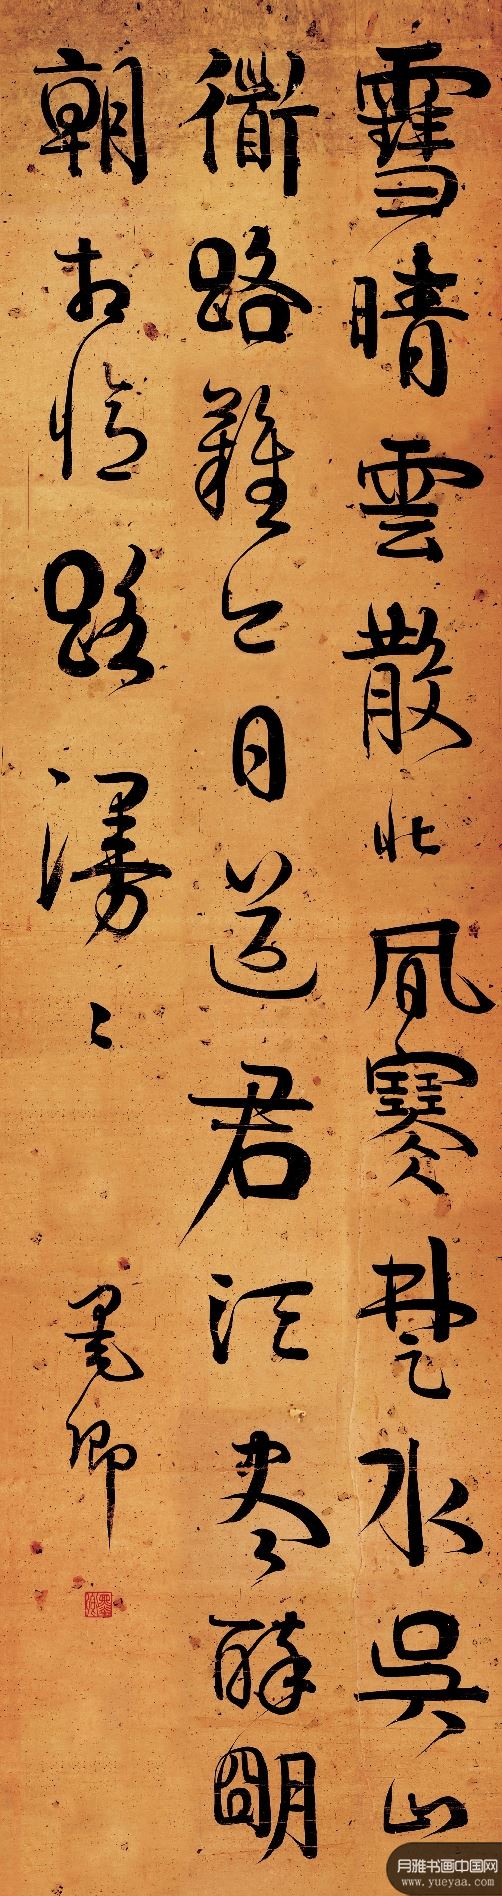 雪晴雲散北風寒楚水吳山
衜路難今日送君須盡醉朙
朝相憶路漫〻
墨卿
月雅书画中国网
www.yueyaa.com